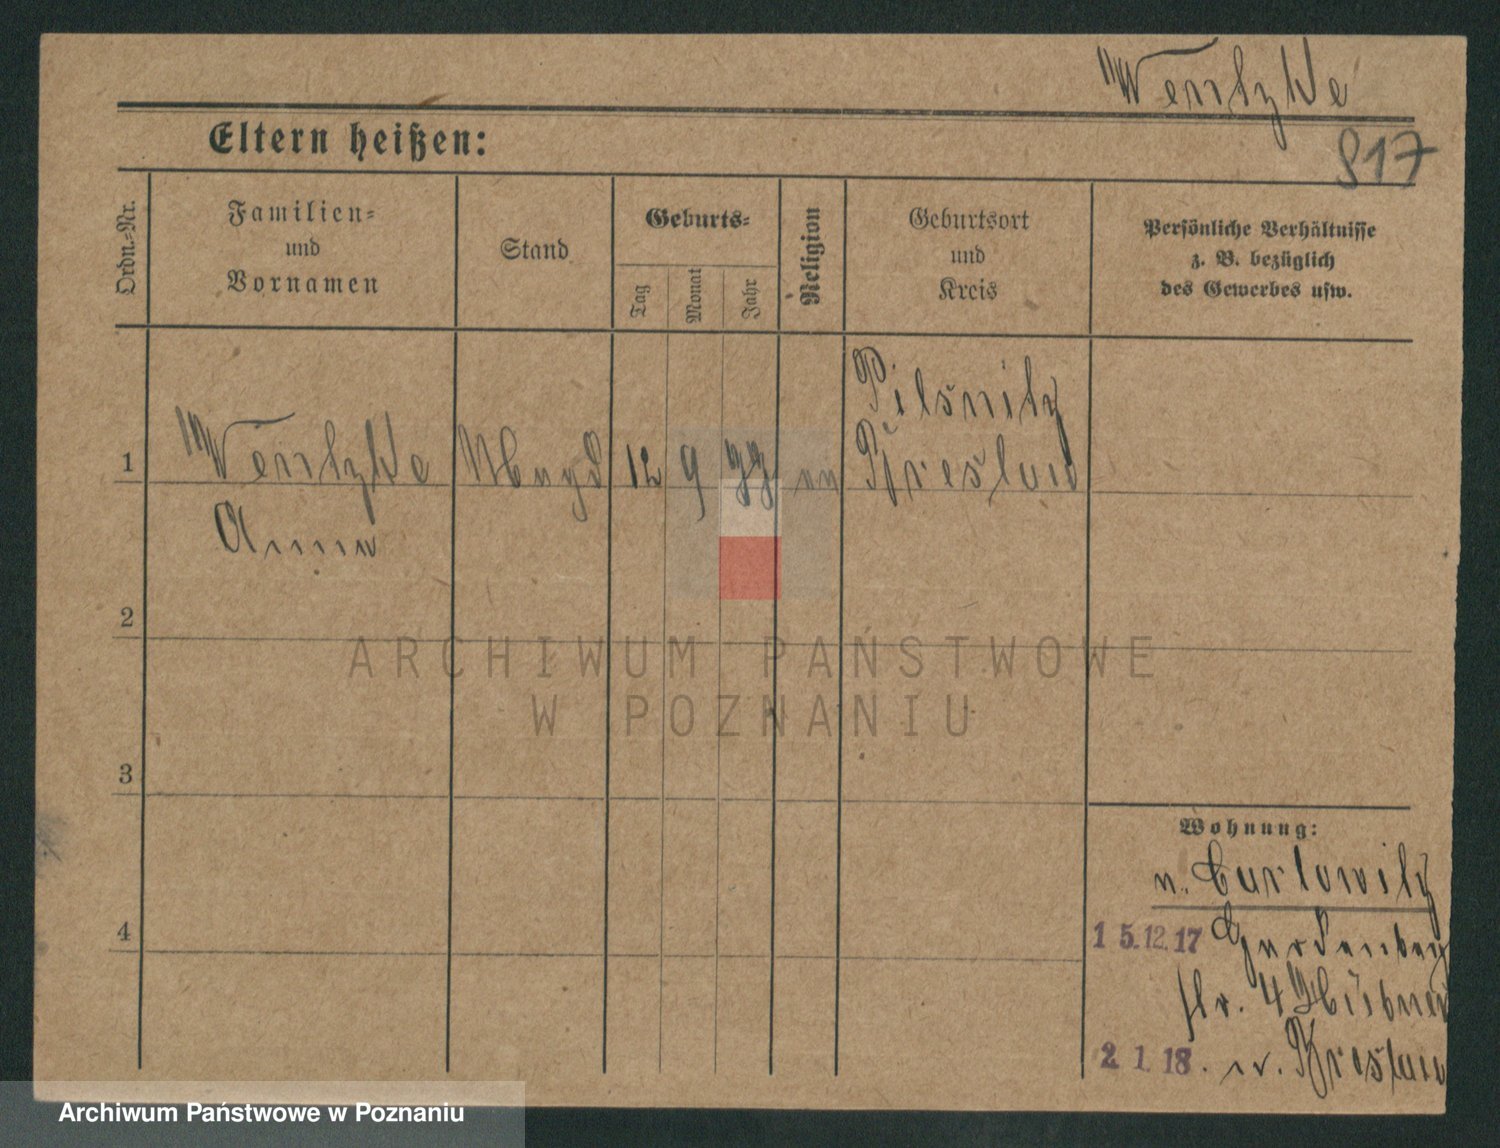 Wentzke
817
Eltern heißen:
Ordn.-Nr.
Familien-
und
Vornamen
Stand
Geburts-
Tag
Monat
Jahr
Religion
Geburtsort
und
Kreis
Persönliche Verhältnisse
z. B. bezüglich
des Gewerbes usw.
Pilsnitz
1 Wentzke Magd 12 9 99 Breslau
Anna
2
3
4
ARCHIWUM PAŃSTWOWE
W POZNANIU
Wohnung:
n. Carlowitz
15.12.17
str. 4 Hübner
2 1. 18. Breslau
Archiwum Państwowe w Poznaniu